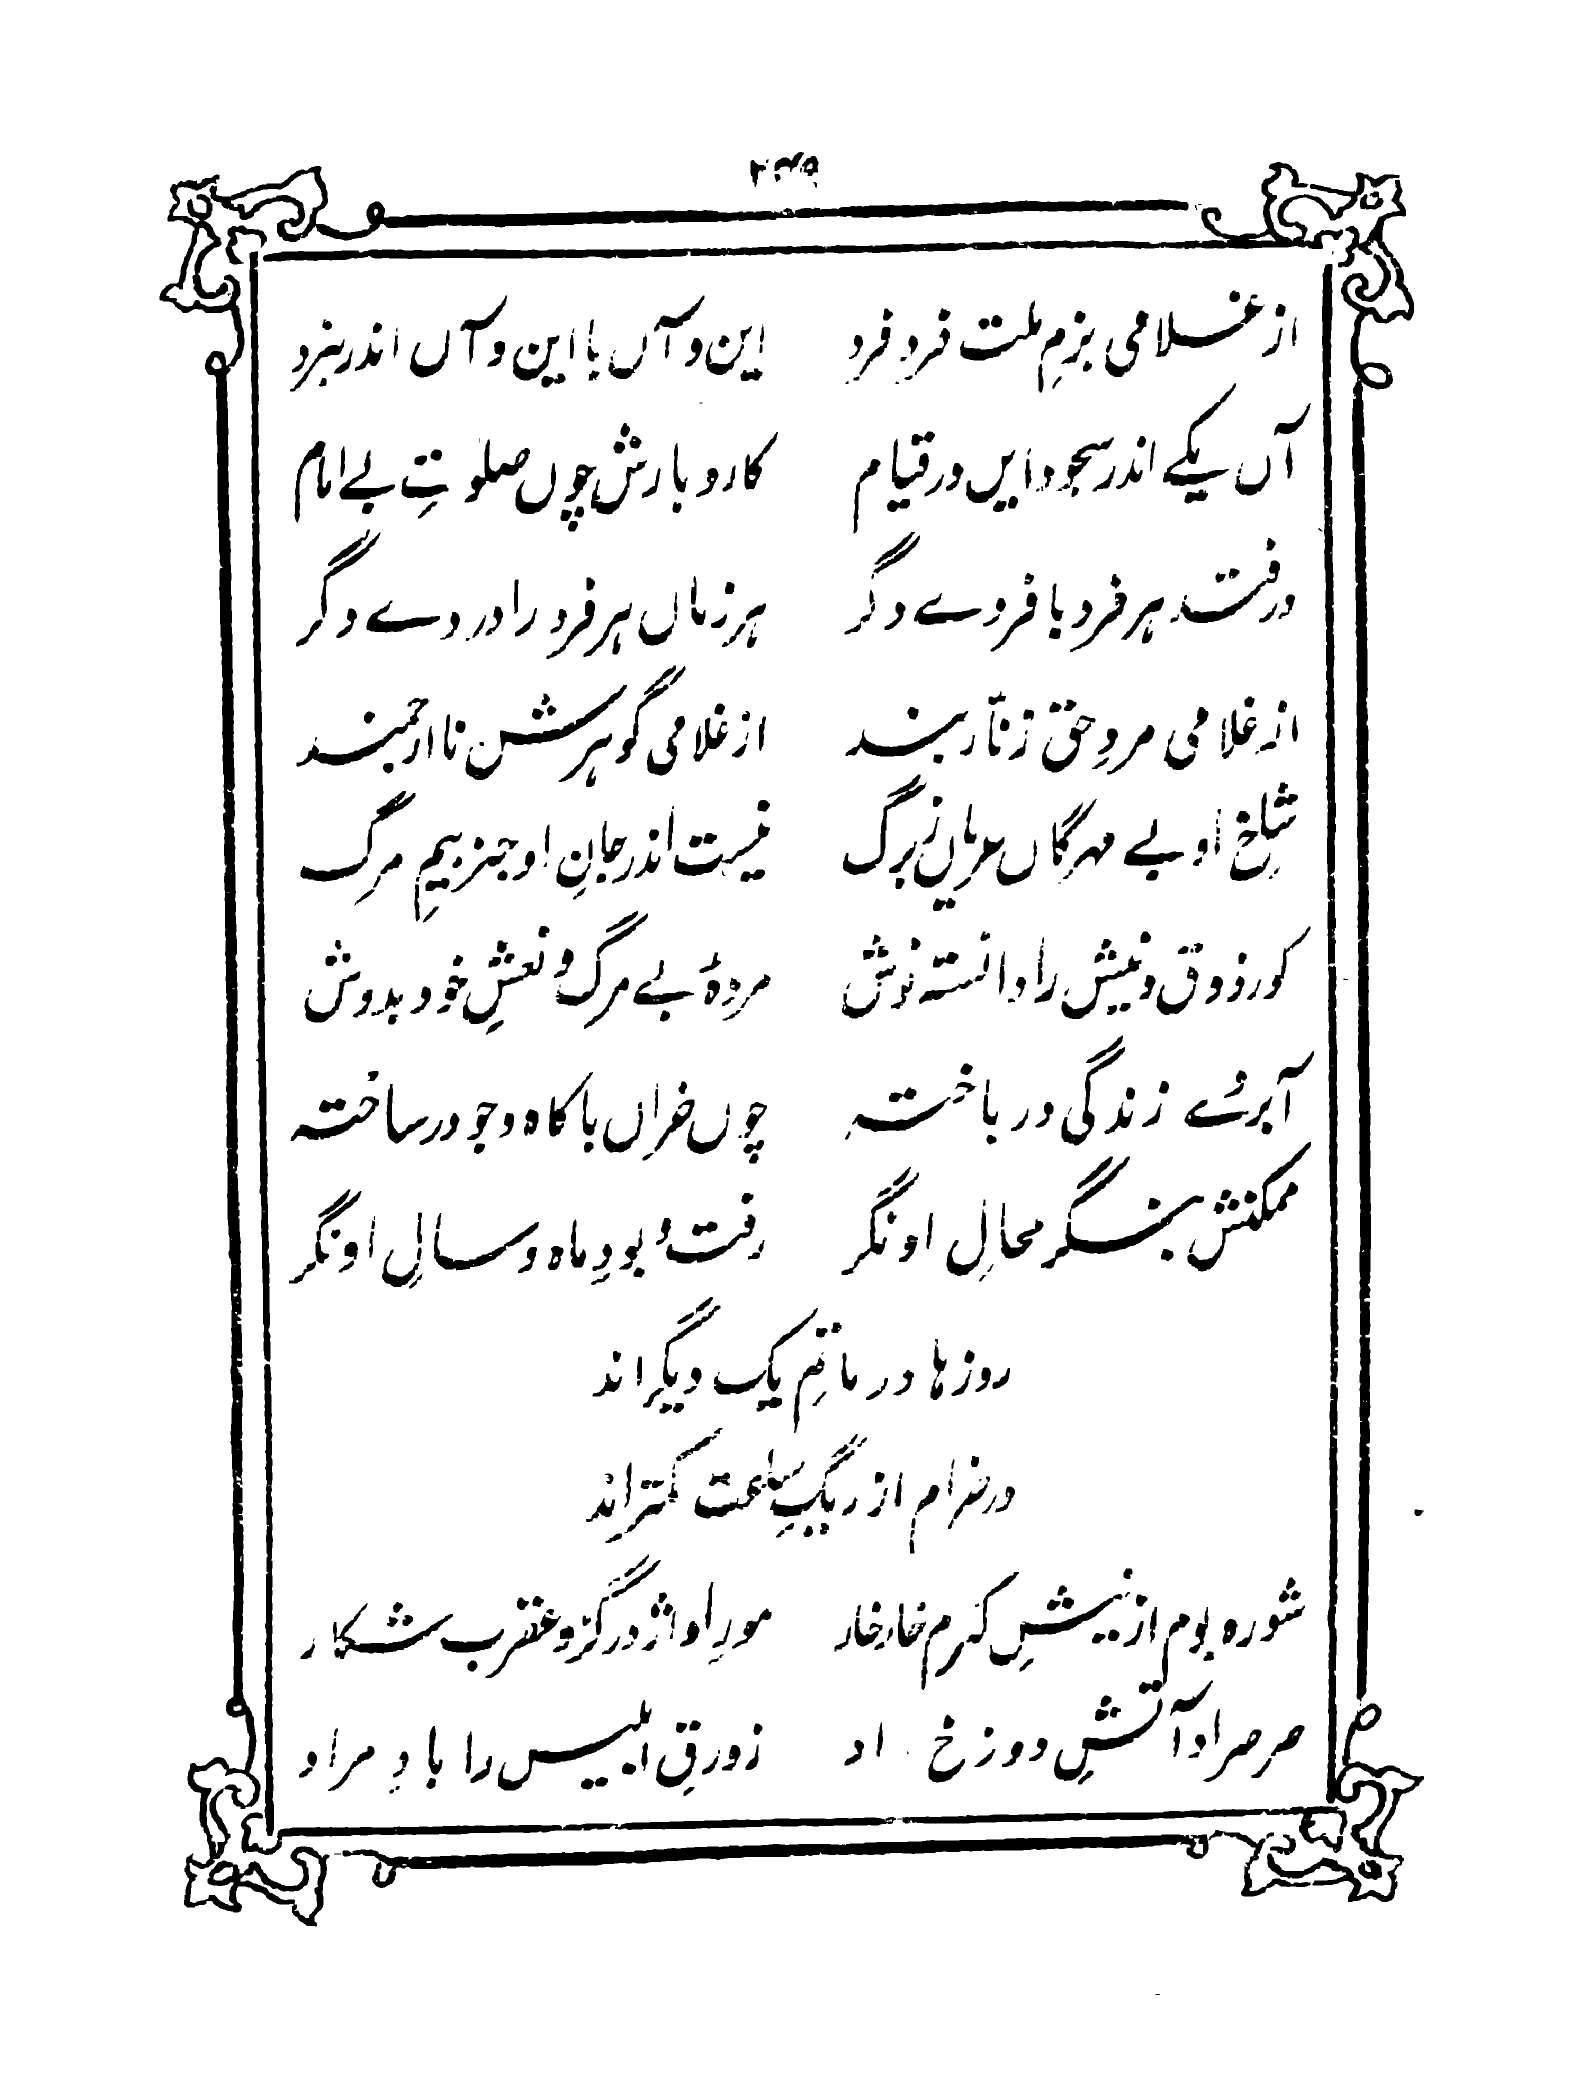 ۲۴۹
از غلامی بزمِ ملت فرد فرد این و آں با این و آں اندر نبرد
آں یکے اندر سجود ایں در قیام کاروبارش چوں صلوٰتِ بے امام
در فتد ہر فرد با فردے دگر ہر زماں ہر فرد را دردے دگر
از غلامی مردِ حق زنّار بند از غلامی گوہرش نا ارجمند
شاخِ او بے مہرگاں عریاں ز برگ نیست اندر جانِ او جز بیمِ مرگ
کور ذوق و نیش را دانستہ نوش مردۂ بے مرگ و نعشِ خود بدوش
آبروے زندگی در باختہ چوں خراں با کاہ و جو در ساختہ
ممکنش بنگر محالِ او نگر رفت و بودِ ماہ و سالِ او نگر
روزہا در ماتمِ یک دیگر اند
در خرام از ریگِ ساعت کمتر اند
شورہ بوم از نیشِ کژدم خار خار مورِ او اژدر گز و عقرب شکار
صرصرِ او آتشِ دوزخ نژاد زورقِ ابلیس را بادِ مراد